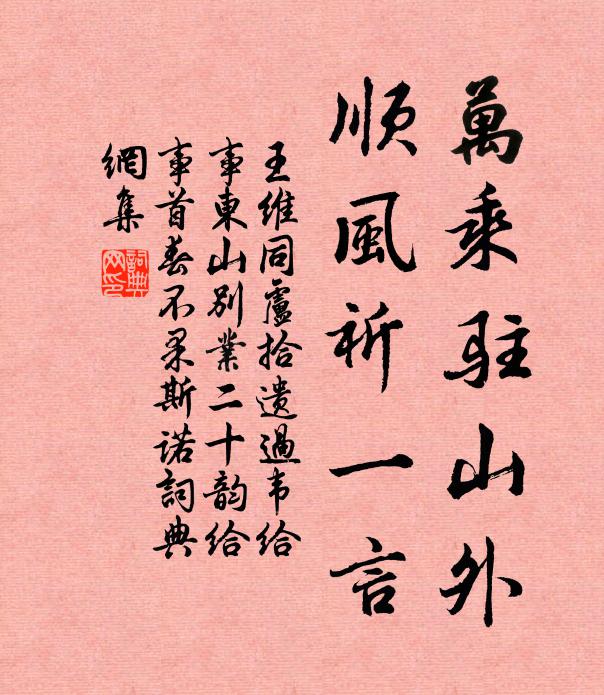 萬乘駐山外
順風祈一言
王維同盧拾遺過韦給
事東山別業二十韵給
事首春不杲斯诺詞典
網集
詞典
网印